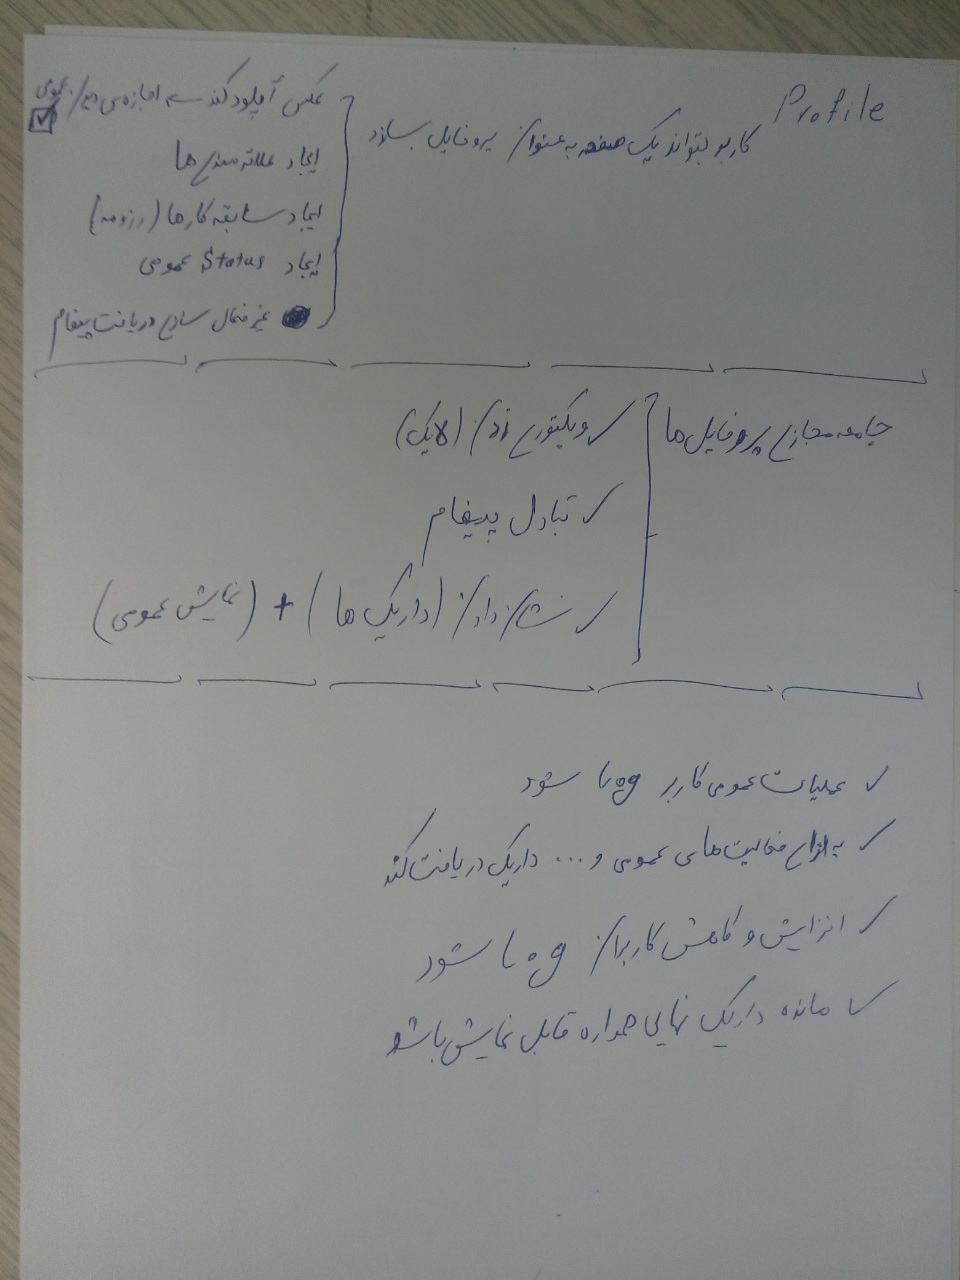 Profile
کاربر بتواند یک صفحه به عنوان پروفایل بسازد
عکس آپلود کند اجازه می دهد عمومی
ایجاد علاقه مندی ها
ایجاد سابقه کارها (رزومه)
ایجاد Status عمومی
غیر فعال سازی دریافت پیغام
جامعه مجازی پروفایل ها
ویکتوری دادن (لایک)
تبادل پیغام
نشان دادن (داریک ها) + (نمایش عمومی)
عملیات عمومی کاربر Log شود
به ازاع فعالیت های عمومی و ... داریک دریافت کند
افزایش و کاهش کاربران Log شود
مانده داریک نهایی همواره قابل نمایش باشد